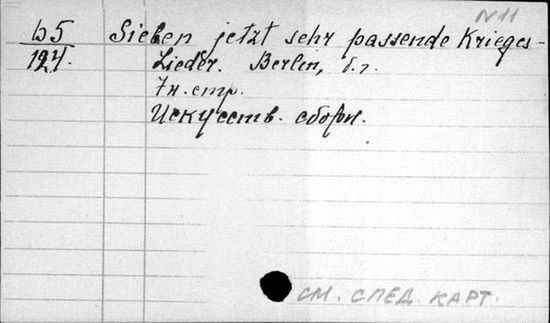 N 11
Ъ5 Sieben jetzt sehr passende Krieges-
124. Lieder. Berlin, б.г.
7н. стр.
Искусств. сборн.
СМ. СПЕД. КАРТ.